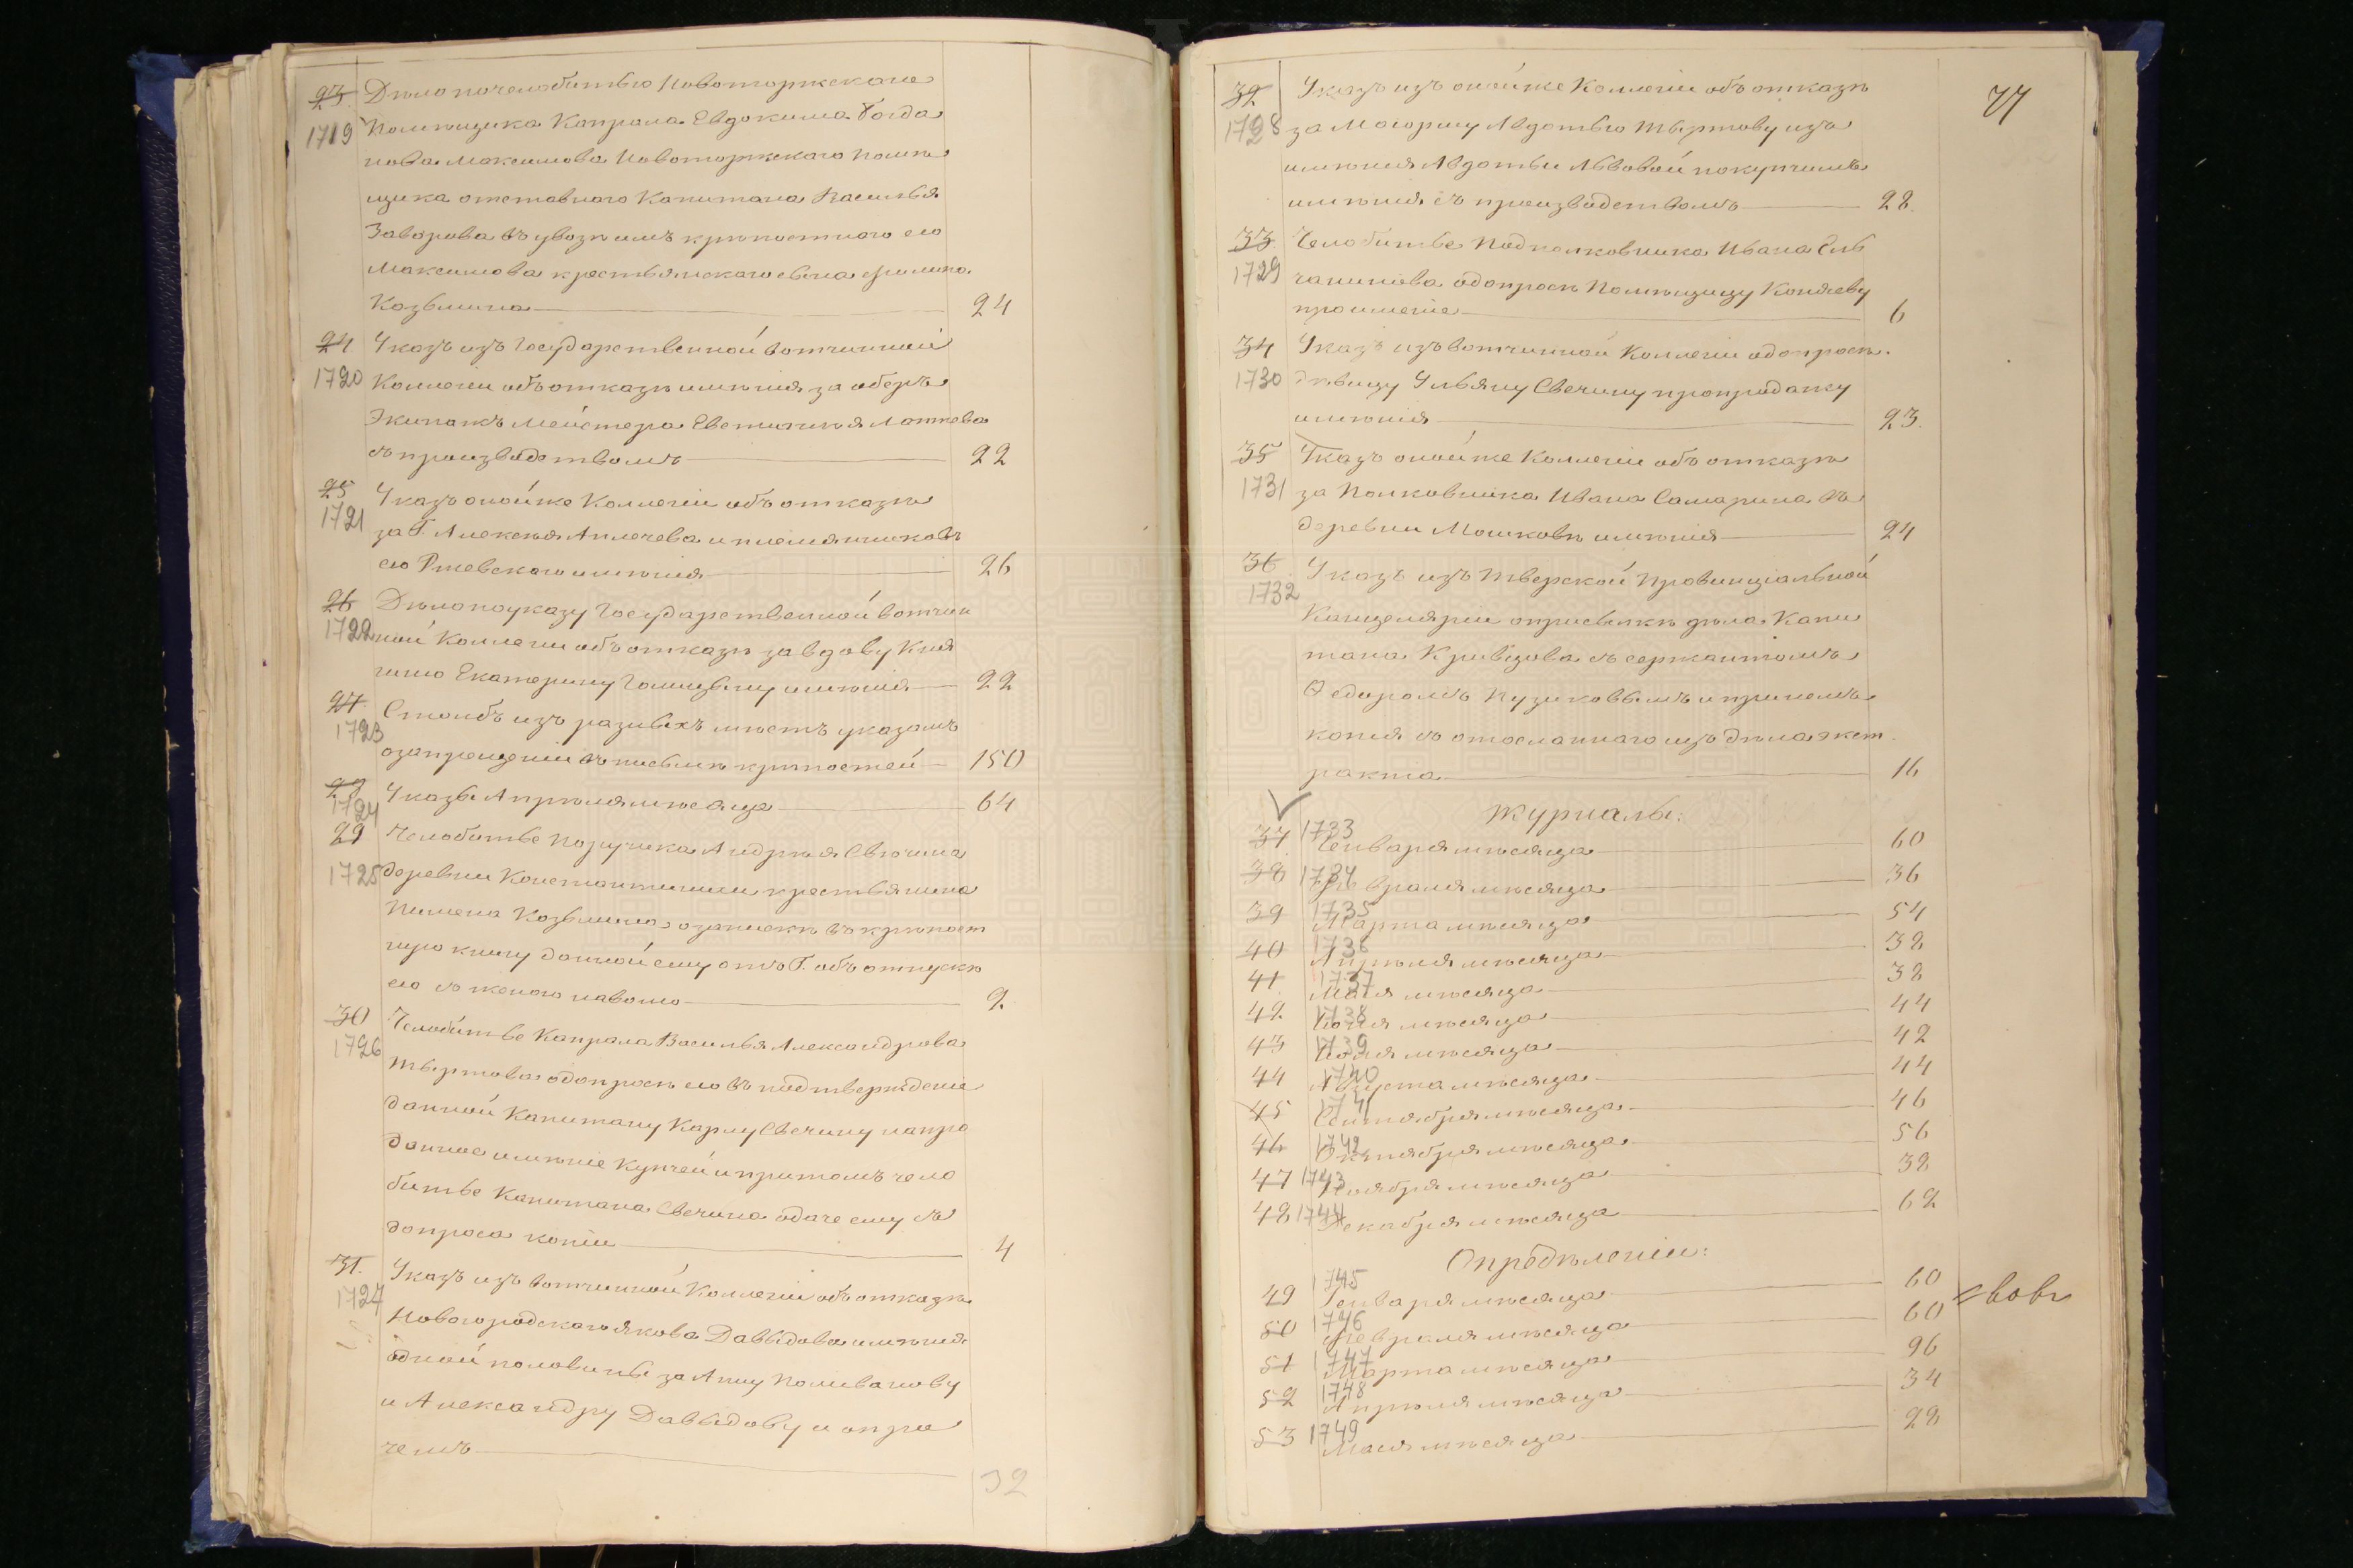 23. Дѣло почелобитью Новоторжскаго
1719 Помѣщика Капрала Евдокима Богда
нова Максимова Новоторжскаго помѣ
щика отставнаго Капитана Василья
Заворова въ увозѣ имъ крѣпостнаго его
Максимова крестьянскаго сына Филипа
Козьмина 24
24. Указъ изъ Государственной вотчинной
1720 Коллегіи объ отказѣ имѣнія за оберъ
Экипажъ Мейстера Евстигнѣя Лоптева
съ производствомъ 22
25 Указъ оной же Коллегіи объ отказѣ
1721 за Г. Алексѣя Аплечева и племянниковъ
его Ржевскаго имѣнія 26
26 Дѣло по указу Государственной вотчин
1722 ной Коллегіи объ отказѣ за вдову Кня
гиню Екатерину Голицыну имѣнія 22
27. Столбъ изъ разныхъ мѣстъ указамъ
1723
о запрещеніи въ письмѣ крѣпостей 150
28 Указы Апрѣля мѣсяца 64
1724
29 Челобитье Поручика Андрѣя Свѣчина
1725 деревни Константинии крестьянина
Пимена Козьмина о запискѣ въ крѣпост
ную книгу данной ему отъ Г. объ отпускѣ
его съ женою на волю 2
30 Челобитье Капрала Василья Александрова
1726
Тыртова о допросѣ его въ подтвержденіе
данной Капитану Карпу Свечину на про
данное имѣніе Купчей и притомъ чело
битье Капитана Свечина о даче ему съ
допроса копіи 4
31. Указъ изъ вотчинной Коллегіи объ отказѣ
1727
Новогородскаго Якова Давыдова имѣнія
одной половины за Анну Поливанову
и Александру Давыдову и о про
чемъ
32
77
32 Указъ изъ оной же Коллегіи объ отказѣ
1728 за Маіоршу Авдотью Тыртову изъ
имѣнія Авдотьи Львовой покупчимъ
имѣнія съ производствомъ 28.
33 Челобитье Подполковника Ивана Ель
1729 чанинова о допросѣ Помѣщицу Коняеву
про имѣніе 6
34 Указъ изъ вотчинной Коллегіи о допросѣ
1730 дѣвицу Ульяну Свечину про продажу
имѣнія 23.
35 Указъ оной же Коллегіи объ отказѣ
1731 за Полковника Ивана Самарина въ
деревни Мошковѣ имѣнія 24
36 Указъ изъ Тверской Провинціальной
1732
Канцеляріи о присылкѣ дѣла Капи
тана Кривцова съ сержантомъ
Федоромъ Пузиковымъ и при немъ
копія съ отосланнаго изъ дѣла экст
ракта 16
Журналы:
37 1733 Генваря мѣсяца 60
38 1734 Февраля мѣсяца 36
39 1735 Марта мѣсяца 54
40 1736 Апрѣля мѣсяца 32
41 1737 Маія мѣсяца 38
42 1738 Іюня мѣсяца 44
43 1739 Іюля мѣсяца 42
44 1740 Августа мѣсяца 44
45 1741 Сентября мѣсяца 46
46 1742 Октября мѣсяца 56
47 1743 Ноября мѣсяца 38
48 1744 Декабря мѣсяца 62
Опредѣленіи:
49 1745 Генваря мѣсяца 60
50 1746 Февраля мѣсяца 60
51 1747 Марта мѣсяца 96
52 1748 Апрѣля мѣсяца 34
53 1749 Маія мѣсяца 28